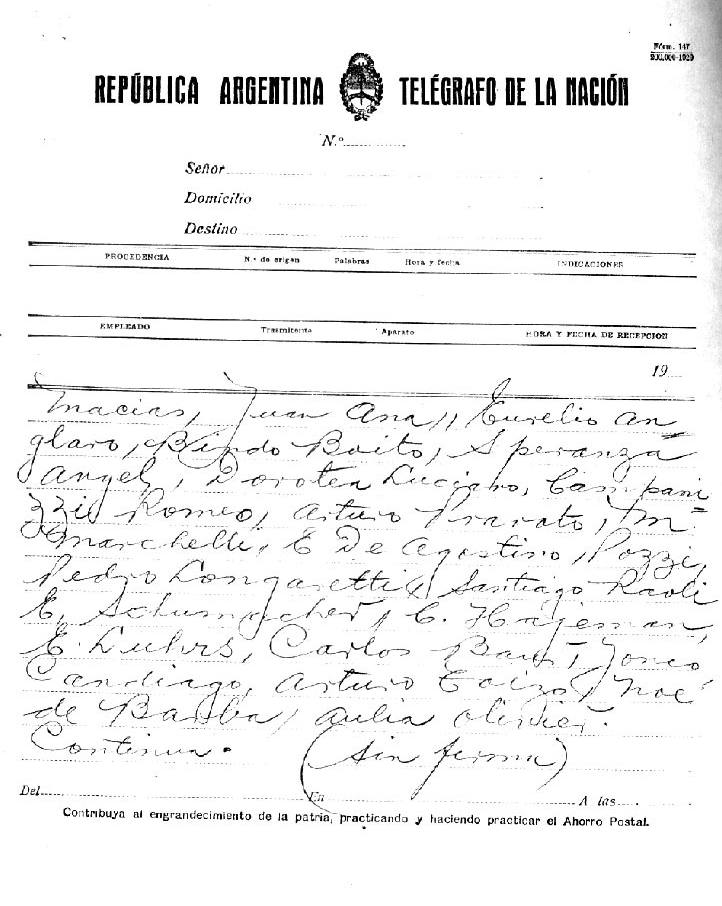 Fórm. 147
200.000-1929
REPÚBLICA ARGENTINA TELÉGRAFO DE LA NACIÓN
N.º
Señor
Domicilio
Destino
PROCEDENCIA N.º de origen Palabras Hora y fecha INDICACIONES
EMPLEADO Trasmitente Aparato HORA Y FECHA DE RECEPCION
19
Macias, Juan Ana, Eurelio An
glaro, Rindo Boito, Speranza
Angel, Dorotea Luciano, Campani
zzi Romeo, Arturo Pravato, M=
Marchelli, E De Agostino, Pozzi,
Pedro Longaretti Santiago Raoli
E. Schumacher, C. Hajeman,
E. Luhrs, Carlos
Candiago, Arturo Noé
de Barba, Aulia Olivier.
Continua. (sin firma)
Del En A las
Contribuya al engrandecimiento de la patria, practicando y haciendo practicar el Ahorro Postal.